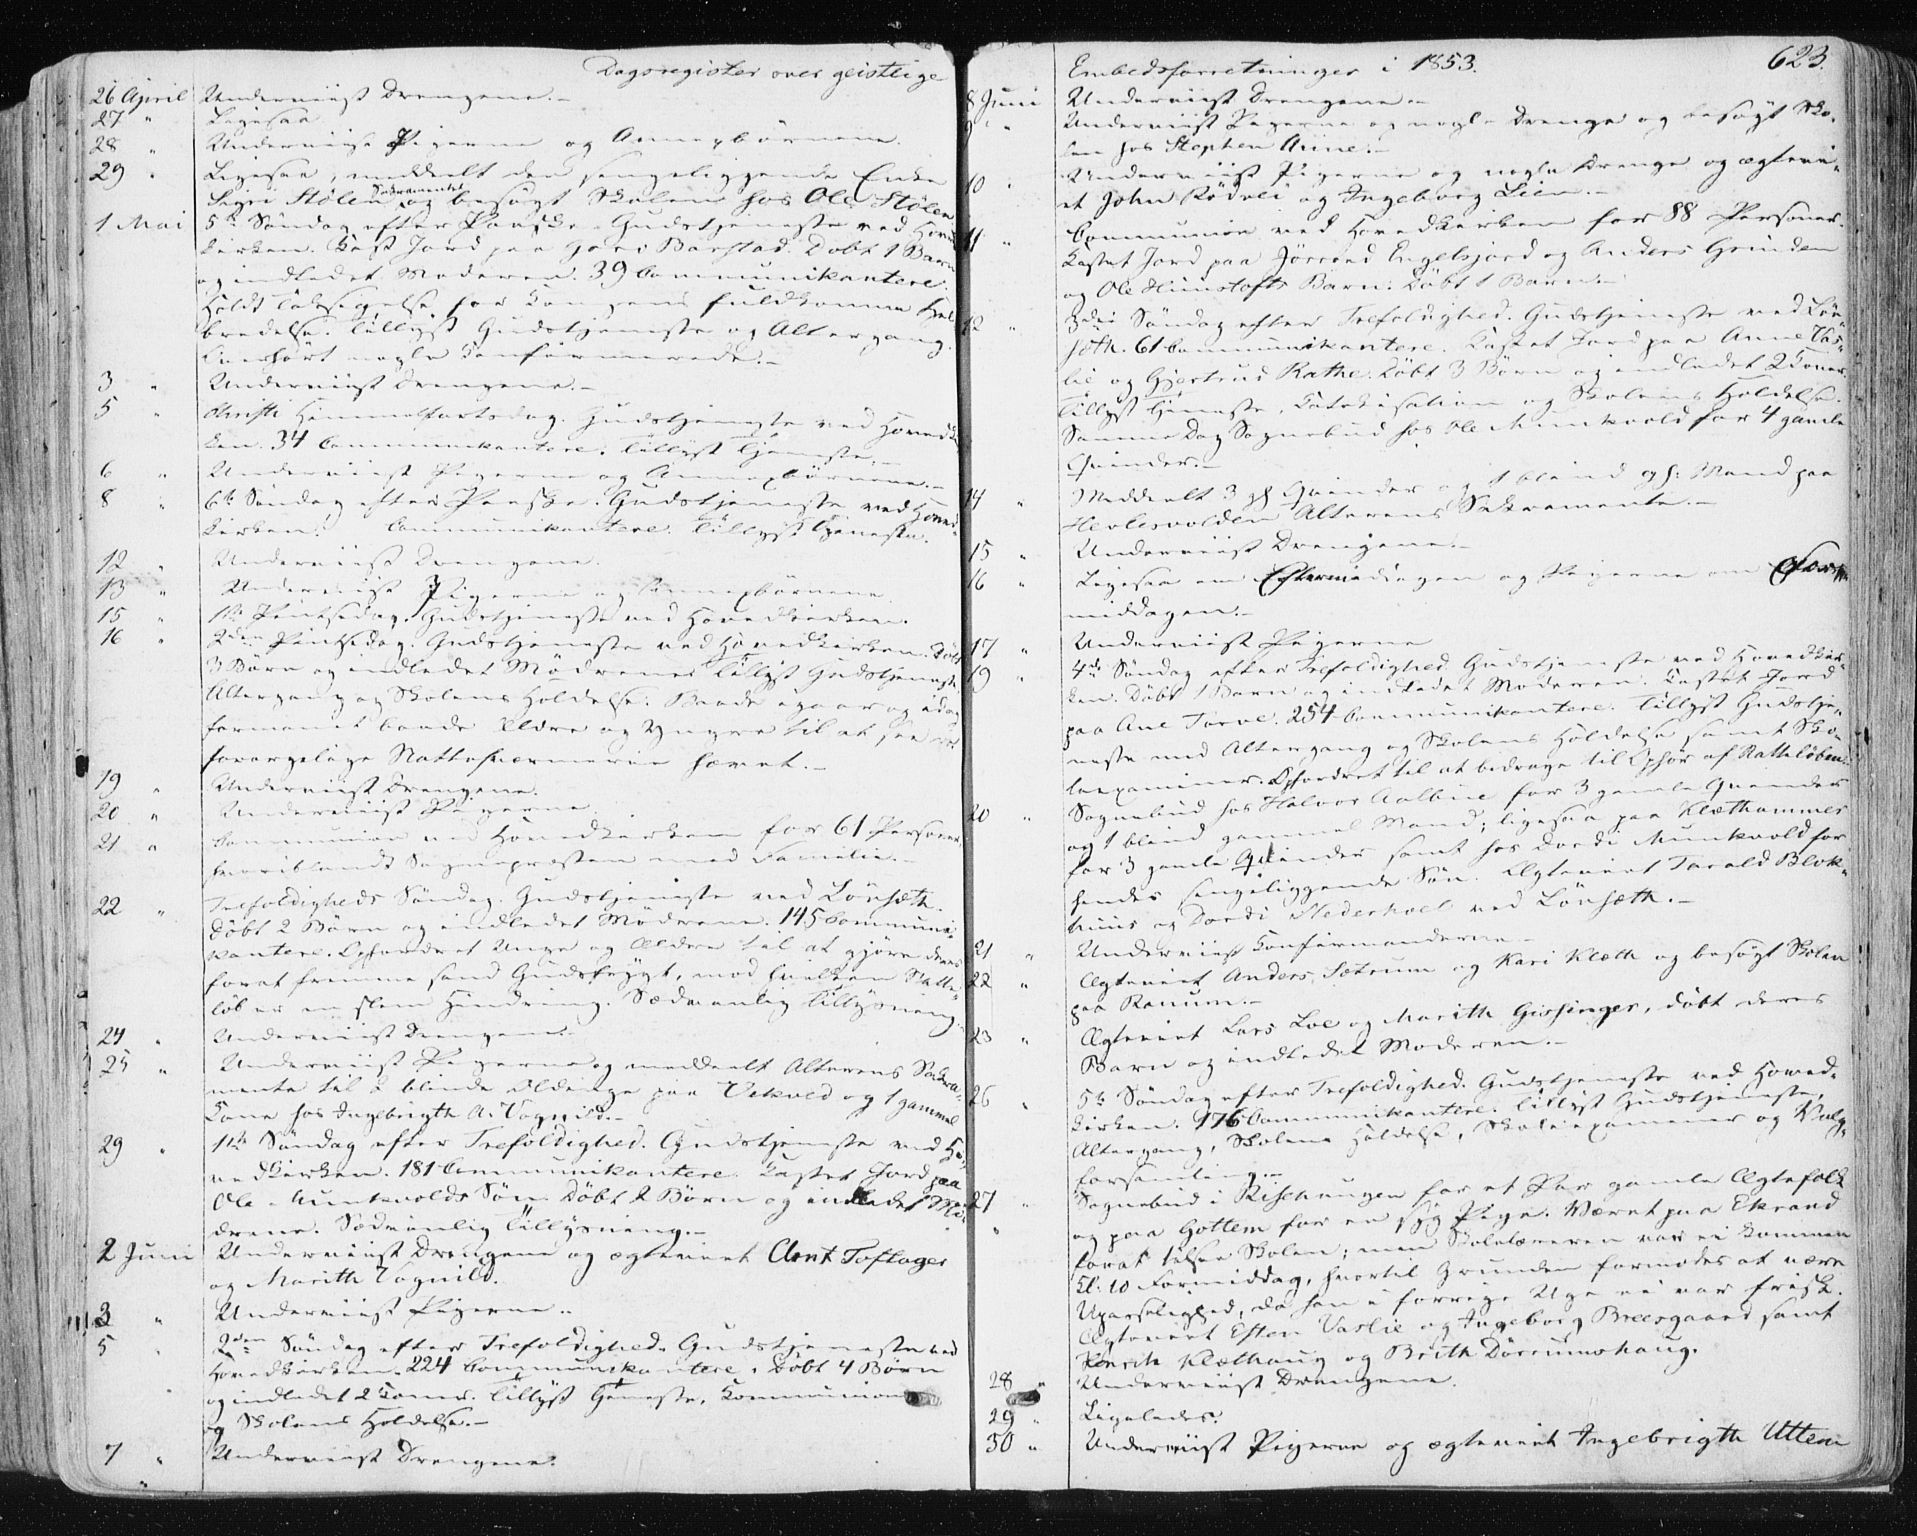 Dagsregister over geistlige
26 April Underviist Drengene.-
27 " Ligesaa
28 " Underviist Pigerne og Annexbörnene.
29 " Ligesaa, meddeelt den sengeliggende Enke
Sigri Stölen Sakramentet og besögt Skolen hos Ole Stölen
1 Mai 5te Söndag efter Paaske. Gudstjeneste ved Hoved
kirken. Kast Jord paa Barstad. Döbt 1 Barn
og indledet Moderen. 39 Communikantere.
Holdt Taksigelse for Kongens fuldkomne Hel
bredelse. Tillyst Gudstjeneste og Altergang.
Overhört nogle Confirmerede.-
3 " Underviist Drengene.-
5 " Christi Himmelfartsdag. Gudstjeneste ved Hovedkir
ken. 34 Communikantere. Tillyst Tjeneste.-
6 " Underviist Pigerne og Annexbörnene.-
8 " 6te Söndag efter Paaske. Gudstjeneste ved Hoved-
kirken. Communikantere. Tillyst Tjeneste.
12 " Underviist Drengene.
13 " Underviist Pigerne og Annexbörnene.
15 " 1ste Pintsedag. Gudstjeneste ved Hovedkirken.
16 " 2den Pintsedag. Gudstjeneste ved Hovedkirken. Döbt
3 Börn og indledet Mödrene. Tillyst Gudstjeneste,
Altergang og Skolens Holdelse. Baade igaar og idag
formanet baade Ældre og Yngre til at see det
forargelige Nattesværmerie hævet.-
19 " Underviist Drengene.
20 " Underviist Pigerne.
21 " Communion ved Hovedkirken for 61 Personer
hvoriblandt Sognepræsten med Familie.-
22 " Trefoldigheds Söndag. Gudstjeneste ved Lönseth.
Döbt 2 Börn og indledet Mödrene. 145 Communi-
kantere. Opfordret Unge og Ældre til at gjöre deres
forat fremme sand Gudsfrygt, mod hvilken Natte-
löb er en slem Hindring. Sædvanlig Tillysning.
24 " Underviist Drengene.
25 " Underviist Pigerne og meddeelt Alterens Sakra-
mente til 2 blinde Oldinge paa Vekveld og 1 gammel
Kone hos Ingebrigth A. Vognild.-
29 " 1ste Söndag efter Trefoldighed. Gudstjeneste ved Ho-
vedkirken. 181 Communikantere. Kastet Jord paa
Ole Munkvolds Sön. Döbt 2 Börn og indledet Mö-
drene. Sædvanlig Tillysning.-
2 Juni Underviist Drengene og ægteviet Arnt Toftager
og Marith Vognild.
3 " Underviist Pigerne..
5 " 2den Söndag efter Trefoldighed. Gudstjeneste ved
Hovedkirken. 224 Communikantere. Döbt 4 Börn
og indledet 2 Koner. Tillyst Tjeneste, Communion
og Skolens Holdelse.-
7 " Underviist Drengene.
Embedsforretninger i 1853. 623.
8 Juni Underviist Drengene.-
9 " Underviist Pigerne og nogle Drenge og besögt Sko-
len hos Stephen Aune.-
10 " Underviist Pigerne og nogle Drenge og ægtevi-
et John Rödvei og Ingeborg Lien.-
11 " Communion ved Hovedkirken for 88 Personer.
Kastet Jord paa Engelsjord og Anders Grinden
og Ole Barn. Döbt 1 Barn.-
12 " 3die Söndag efter Trefoldighed. Gudstjeneste ved Lön-
seth. 61 Communikantere. Kastet Jord paa Anne Vas-
lie og Gjertrud Rathe. Döbt 3 Börn og indledet 2 Koner.
Tillyst Tjeneste, Catekisation og Skolens Holdelse.
Samme Dag Sognebud hos Ole Munkvold for 4 gamle
Qvinder.-
14 " Meddeelt 3 gl. Qvinder og 1 blind gl. Mand paa
Hevlesvolden Alterens Sakramente.-
15 " Underviist Drengene.-
16 " Ligesaa om Eftermiddagen og Pigerne om For-
middagen.-
17 " Underviist Pigerne
19 " 4de Söndag efter Trefoldighed. Gudstjeneste ved Hovedkir-
ken. Döbt 1 Barn og indledet Moderen. Kastet Jord
paa Ane Torve. 254 Communikantere. Tillyst Gudstje-
neste med Altergang og Skolens Holdelse samt Sko-
leexaminer. Opfordret til at bidrage til Ophör af Natteløben.
20 " Sognebud hos Halvor Aalbue for 3 gamle Qvinder
og 1 blind gammel Mand; ligesaa paa Klethammer
for 3 gamle Qvinder samt hos Dordi Munkvold for
hendes sengeliggende Sön. Ægteviet Tarald Blok-
huus og Dordi Nederhoel ved Lönseth.-
21 " Underviist Confirmanderne.-
22 " Ægteviet Anders Sætrum og Kari Klæth og besögt Skolen
paa Ranum.-
23 " Ægteviet Lars Loe og Marith Gissinger, döbt deres
Barn og indledet Moderen.-
26 " 5te Söndag efter Trefoldighed. Gudstjeneste ved Hoved-
kirken. 176 Communikantere. Tillyst Gudstjeneste,
Altergang, Skolens Holdelse, Skoleexaminer og Valg-
forsamling.-
27 " Sognebud i Rishaugen for et Par gamle Ægtefolk
" og paa Gottem for en syg Pige. Været paa Ekrand
forat tilsee Skolen; men Skolelæreren var ei kommen
Kl. 10 Formiddag, hvortil Grunden formodes at være
Upasselighed, da han i forrige Uge ei var frisk.
Ægteviet Esten Vaslie og Ingeborg Breesgaard samt
Klethaug og Brith Dörrumshaug.
28 " Underviist Drengene.
29 " Ligeledes.
30 " Underviist Pigerne og ægteviet Ingebrigth Uttem